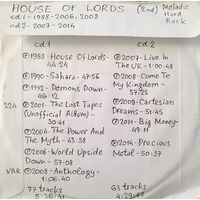 HOUSE OF LORDS (2cd) Melodic
cd 1 - 1988-2006, 2008 Hard
cd 2 - 2007-2014 Rock
cd 1
1988 - House Of Lords -
44:24
1990 - Sahara - 47:56
1992 - Demons Down -
2001 - The Lost Tapes
(Unofficial Album) -
30:41
224
2004 - The Power And
The Myth - 43:38
2006 - World Upside
Down - 57:08
VBR 2008 - Anthology -
1:06:40
77 tracks
5:36:41
cd 2
2007 - Live In
The UK - 1:00:48
2008 - Come To
My Kingdom -
57:25
2009 - Cartesian
Dreams - 51:45
2011 - Big Money -
49:11
2014 - Precious
Metal - 50:37
63 tracks